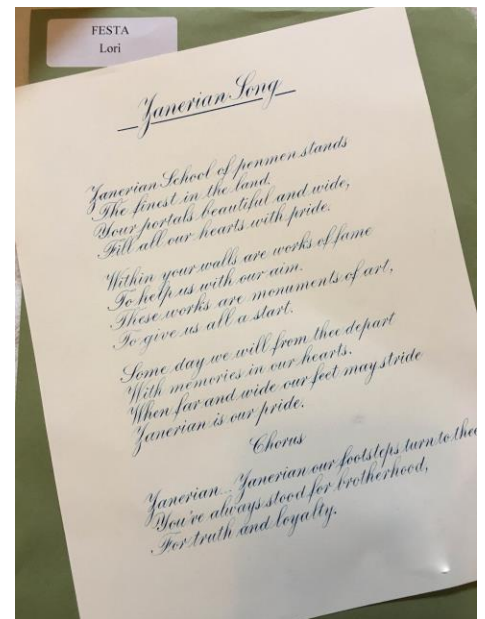 FESTA
Lori
Zanerian Song
Zanerian School of penmen stands
The finest in the land.
Your portals beautiful and wide,
Fill all our hearts with pride.
Within your walls are works of fame
To help us with our aim.
These works are monuments of art,
To give us all a start.
Some day we will from thee depart
With memories in our hearts.
When far and wide our feet may stride
Zanerian is our pride.
Chorus
Zanerian... Zanerian our footsteps turn to thee
You're always stood for brotherhood,
For truth and loyalty.